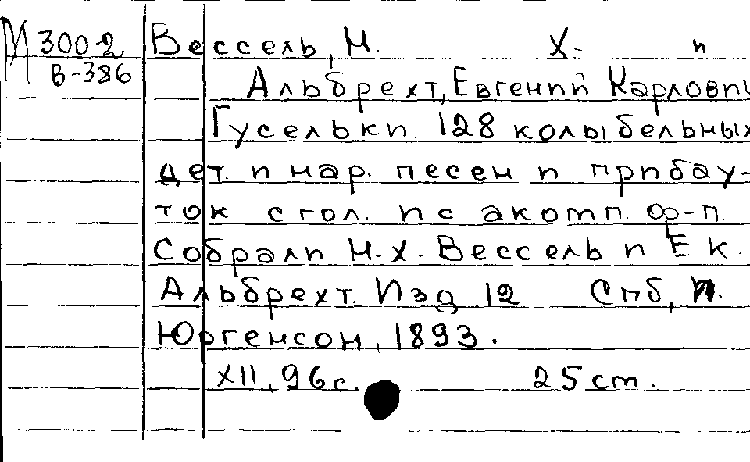 М 3002 Вессель, Н. Х. и
В-386 Альбрехт, Евгений Карлови
Гусельки 128 колыбельных
дет. и нар. песен и прибау-
ток с гол. и с акомп. ф-п.
Собрали Н. Х. Вессель и Е К.
Альбрехт Изд 12 Спб,
Юргенсон, 1893.
XII, 96 с. 25 cm.